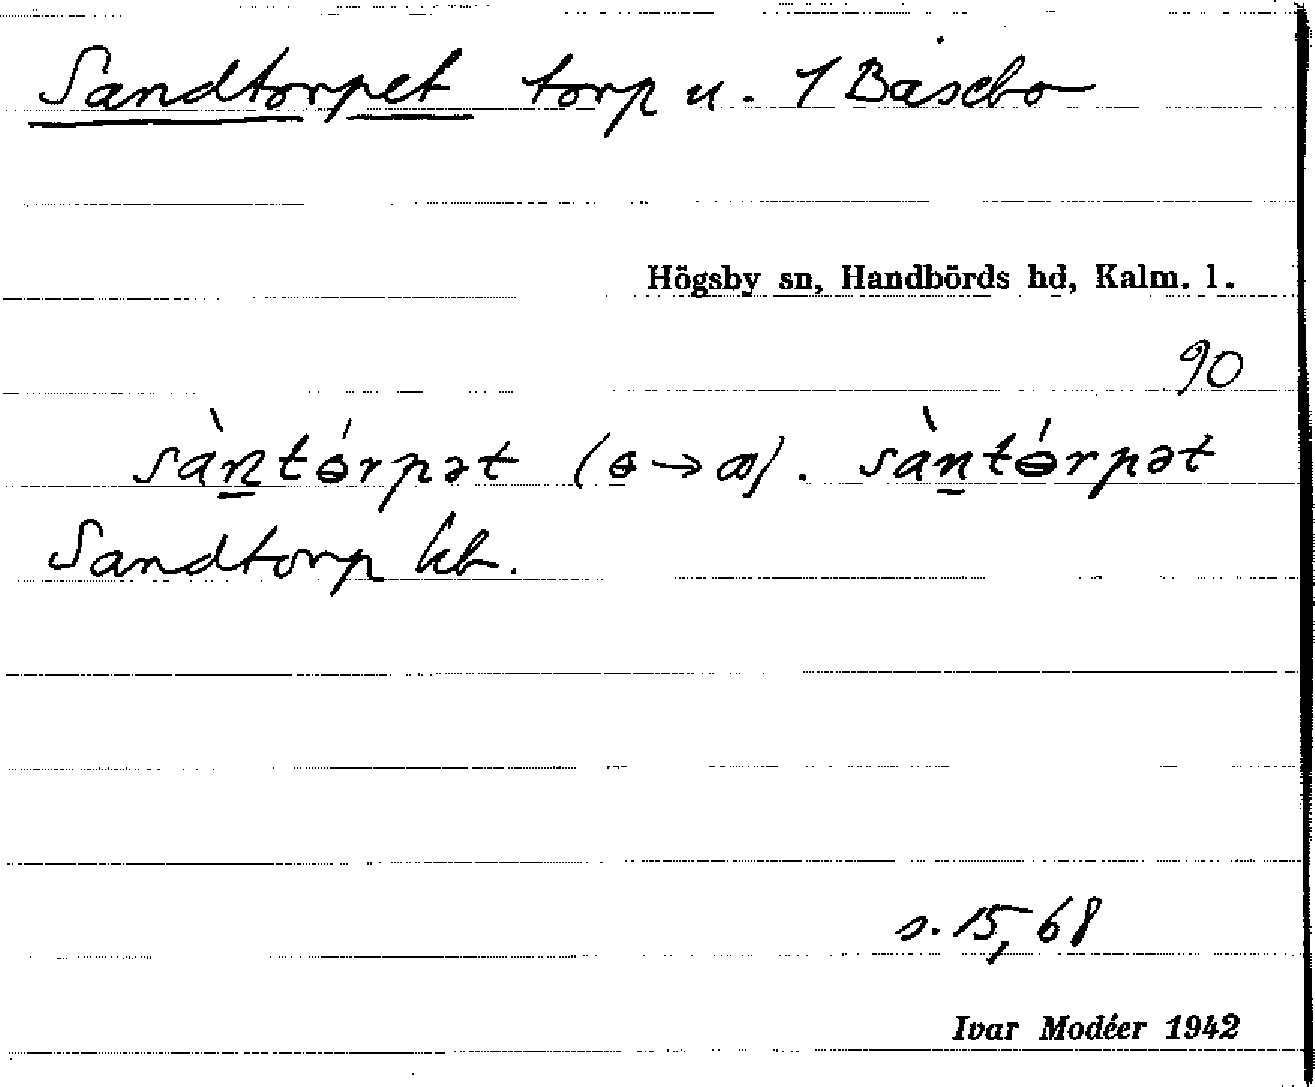 Sandtorpet torp u. 1 Båsebo
Högsby sn, Handbörds hd, Kalm. l.
90
sàn̲tɵ́rpət (ɵ→ꝏ). sàn̲tɵ́rpət
Sandtorp kb.
s. 15, 68
Ivar Modéer 1942